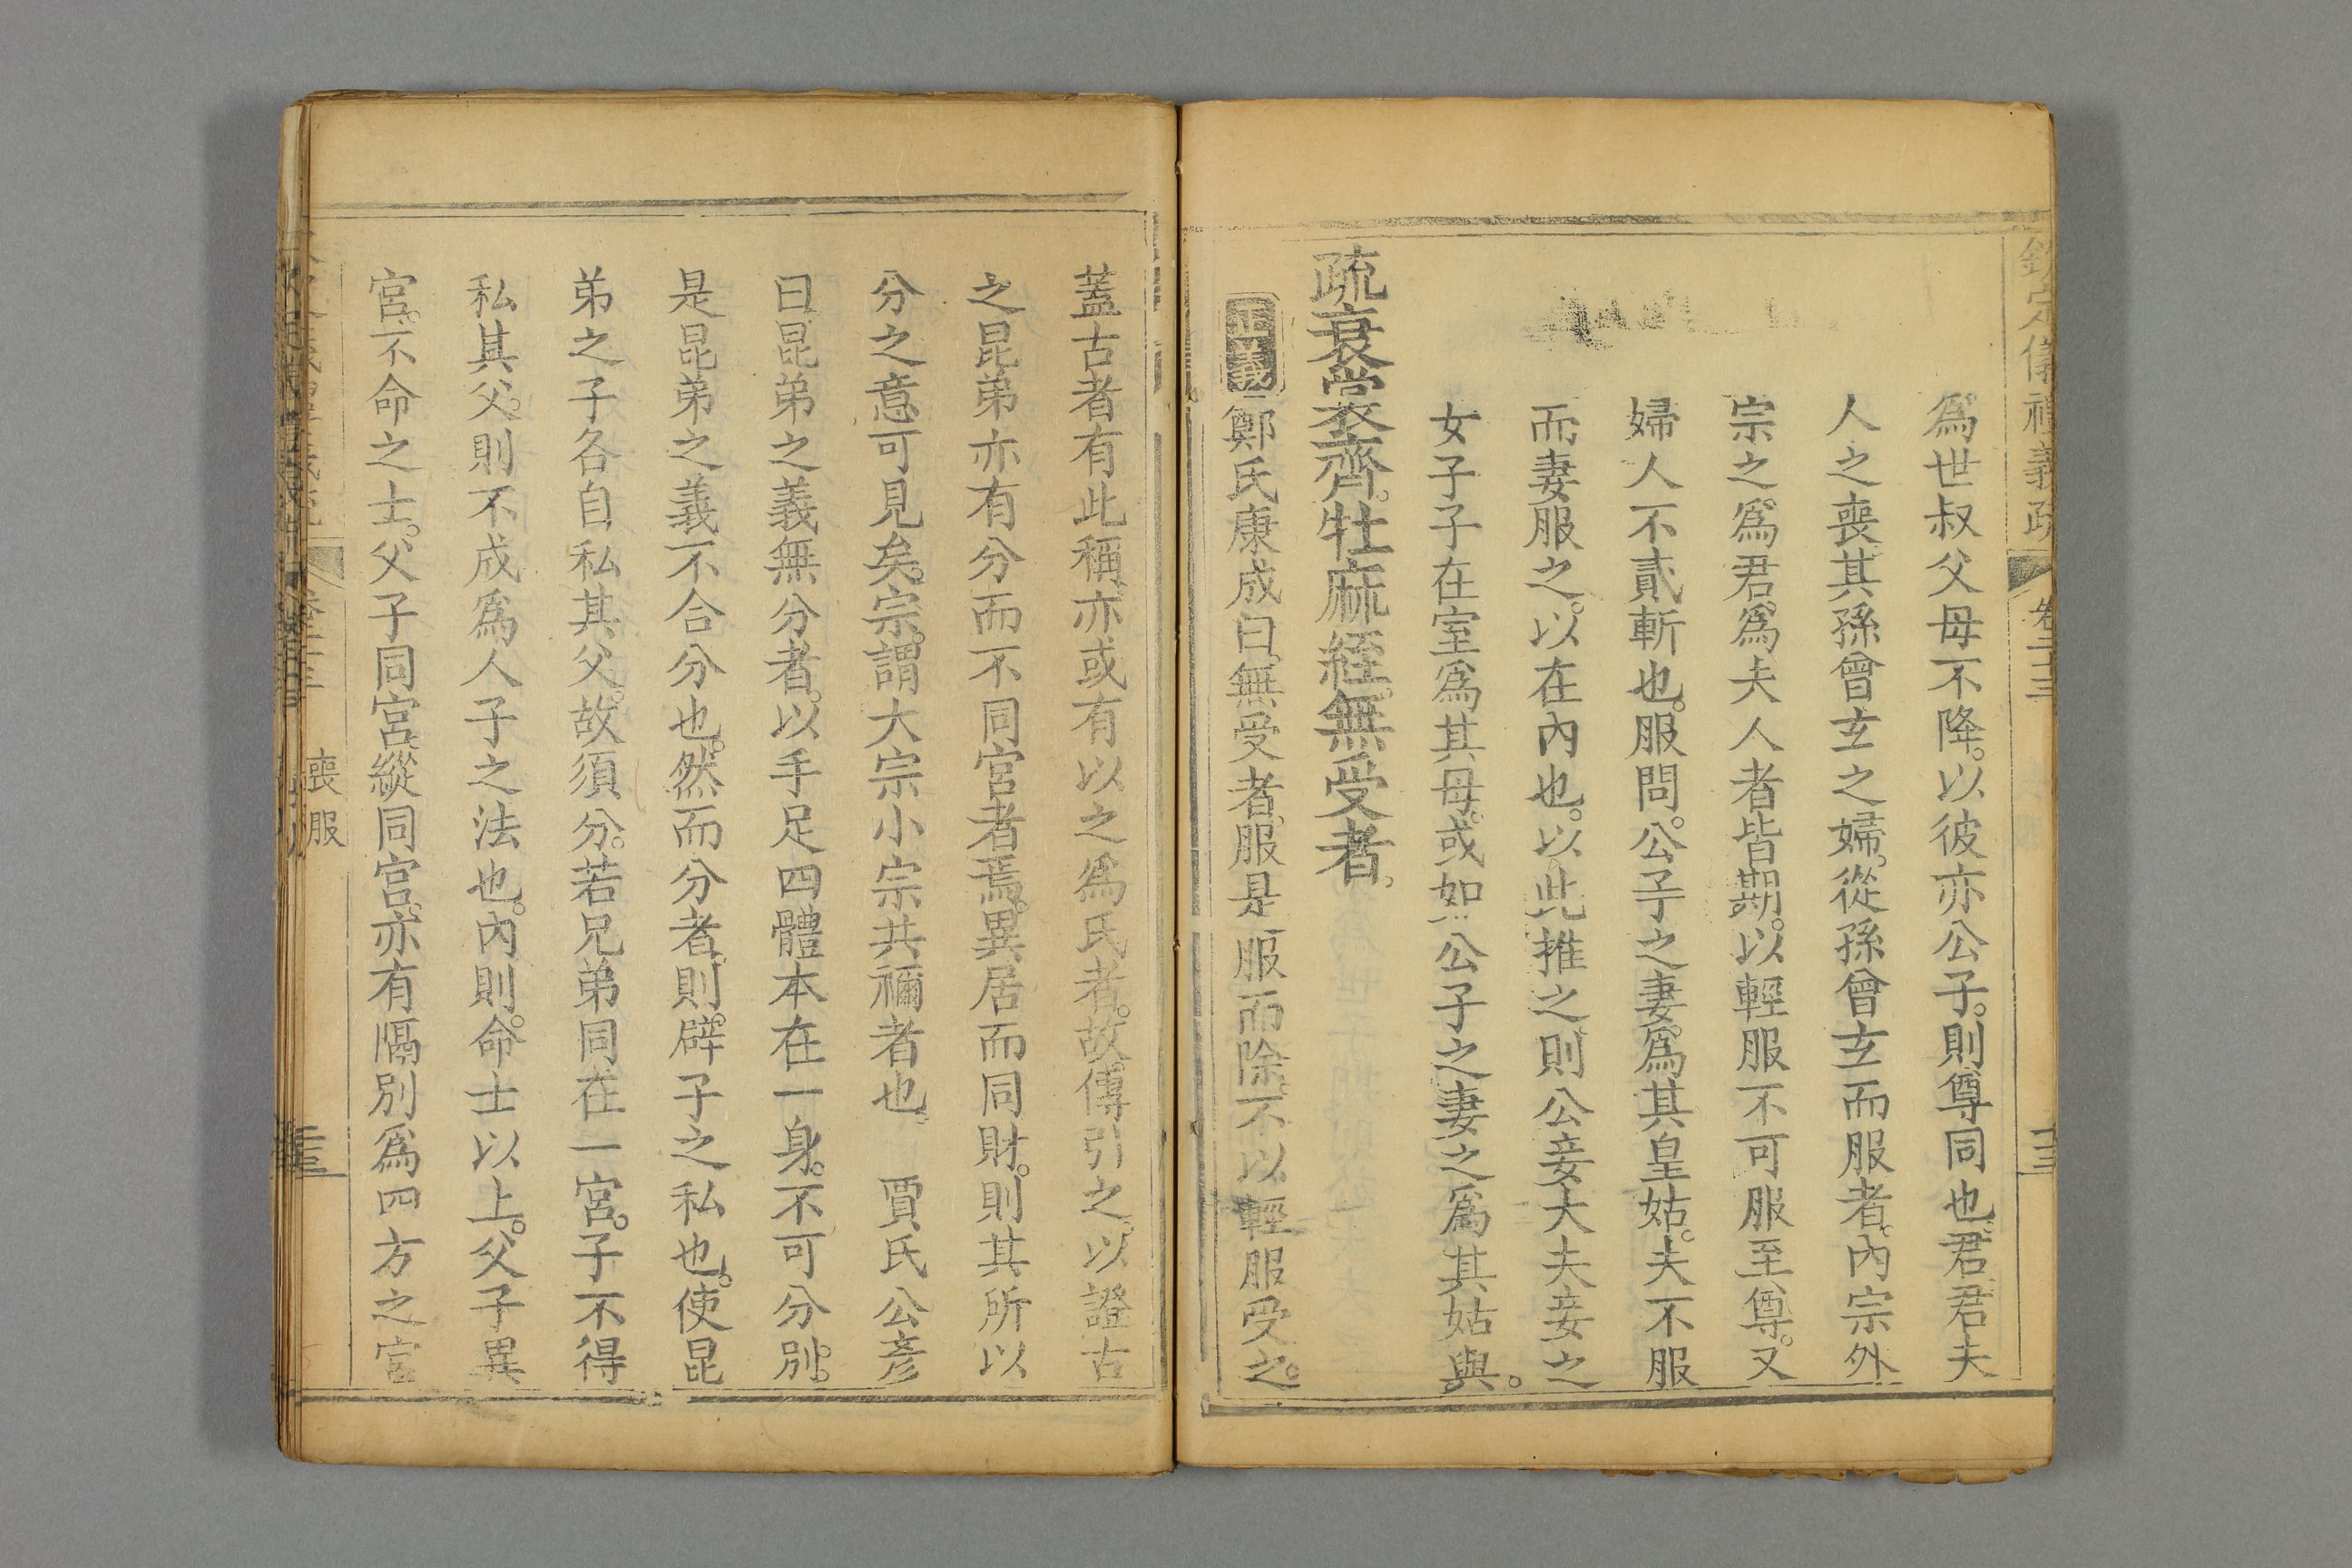 欽定儀禮義疏 卷二十三 十三
爲世叔父母不降。以彼亦公子。則尊同也。君君夫
人之喪其孫曾玄之婦。從孫曾玄而服者。內宗外
宗之爲君。爲夫人者皆期。以輕服不可服至尊。又
婦人不貳斬也。服問。公子之妻。爲其皇姑。夫不服
而妻服之。以在內也。以此推之則公妾大夫妾之
女子子在室爲其母。或如公子之妻之爲其姑與。
疏衰裳齊。牡麻絰。無受者。
正義 鄭氏康成曰。無受者。服是服而除。不以輕服受之。
蓋古者有此稱。亦或有以之爲氏者。故傳引之。以證古
之昆弟亦有分而不同宮者焉。異居而同財。則其所以
分之意可見矣。宗。謂大宗小宗共禰者也。 賈氏公彥
曰昆弟之義無分者。以手足四體本在一身。不可分別。
是昆弟之義不合分也。然而分者。則辟子之私也。使昆
弟之子各自私其父。故須分。若兄弟同在一宮。子不得
私其父。則不成爲人子之法也。內則。命士以上。父子異
宮。不命之士。父子同宮。縱同宮。亦有隔別爲四方之宮
喪服